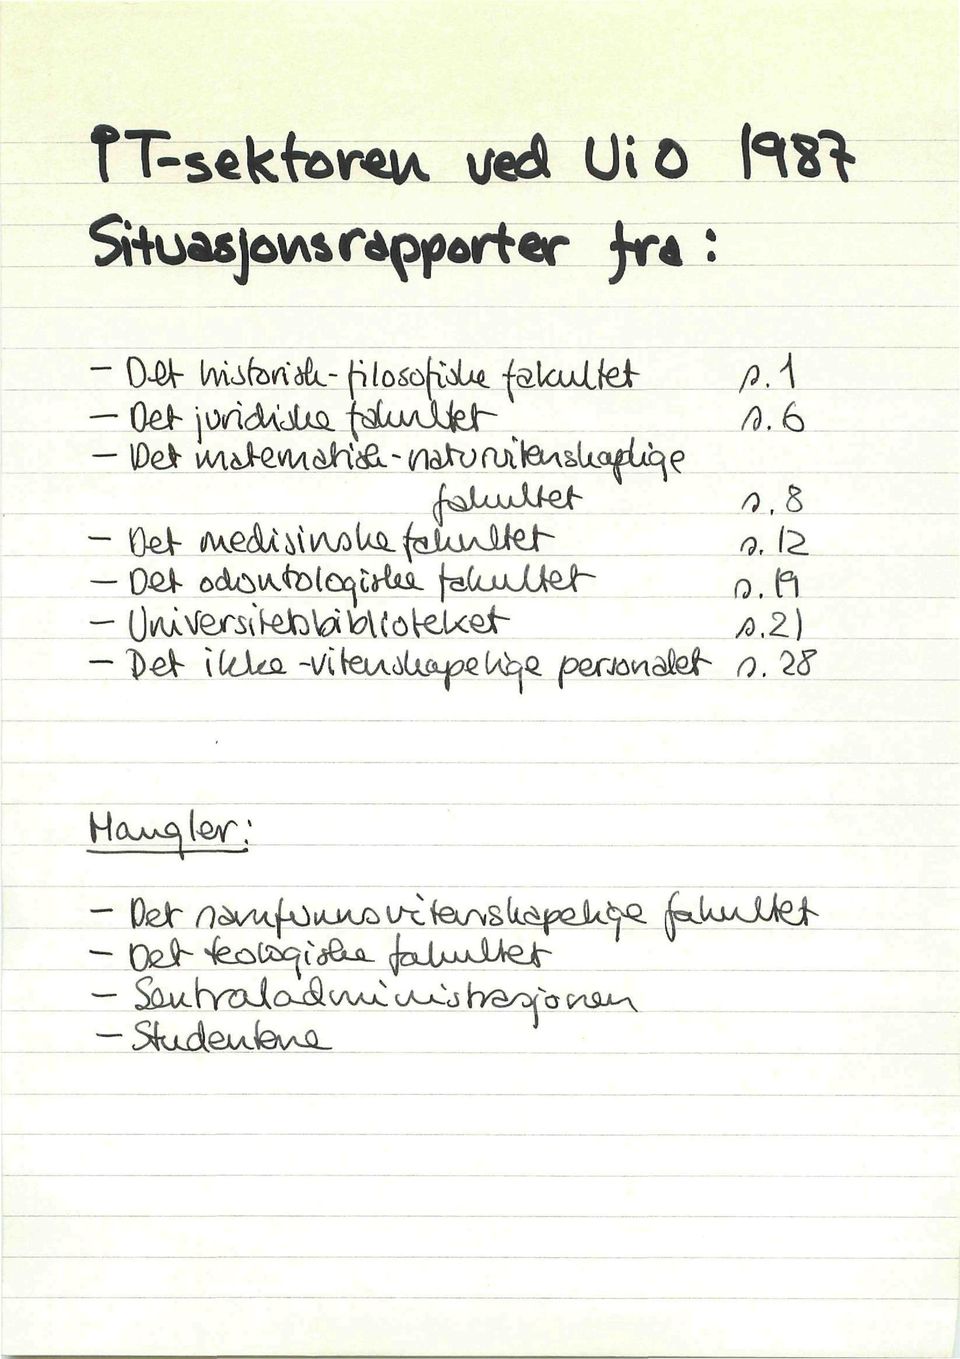 IT-sektoren ved UiO 1987
Situasjonsrapporter fra:
- Det historisk-filosofiske fakultet s. 1
- Det juridiske fakultet s. 6
- Det matematisk-naturvitenskaplige
fakultet s. 8
- Det medisinske fakultet s. 12
- Det odontologiske fakultet s. 19
- Universitetsbiblioteket s. 21
- Det ikke-vitenskapelige personalet s. 28
Mangler:
- Det samfunnsvitenskapelige fakultet
- Det teologiske fakultet
- Sentraladministrasjonen
- Studentene